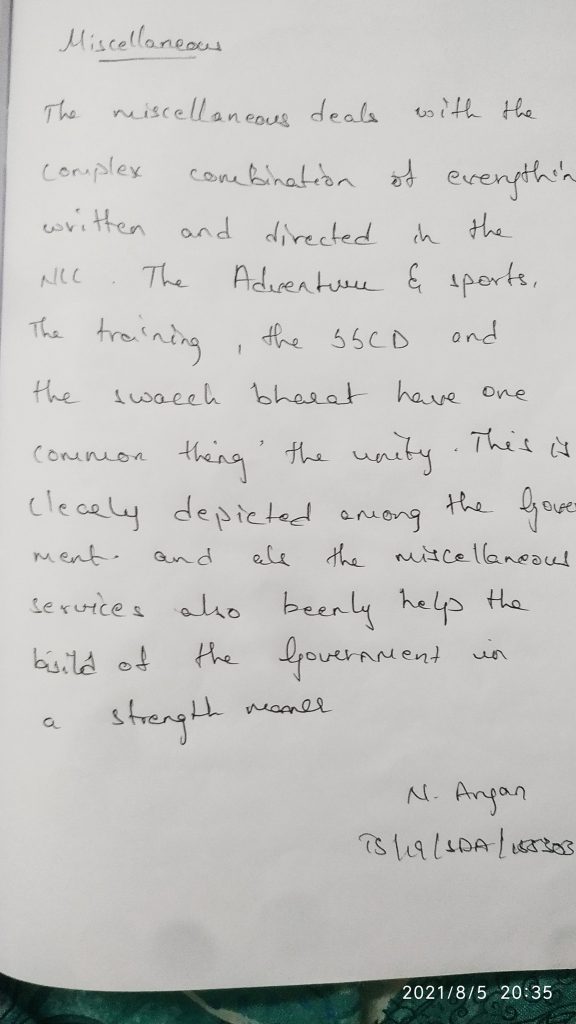 Miscellaneous
The miscellaneous deals with the
complex combination of everythin
written and directed in the
NCC. The Adventure & sports,
The training, the SSCD and
the swacch bharat have one
common thing' the unity. This is
clearly depicted among the Gove
ment. and als the miscellaneous
services also beenly help the
build of the Government in
a strength manner
N. Angan
TS/19/SDA/
2021/8/5 20:35